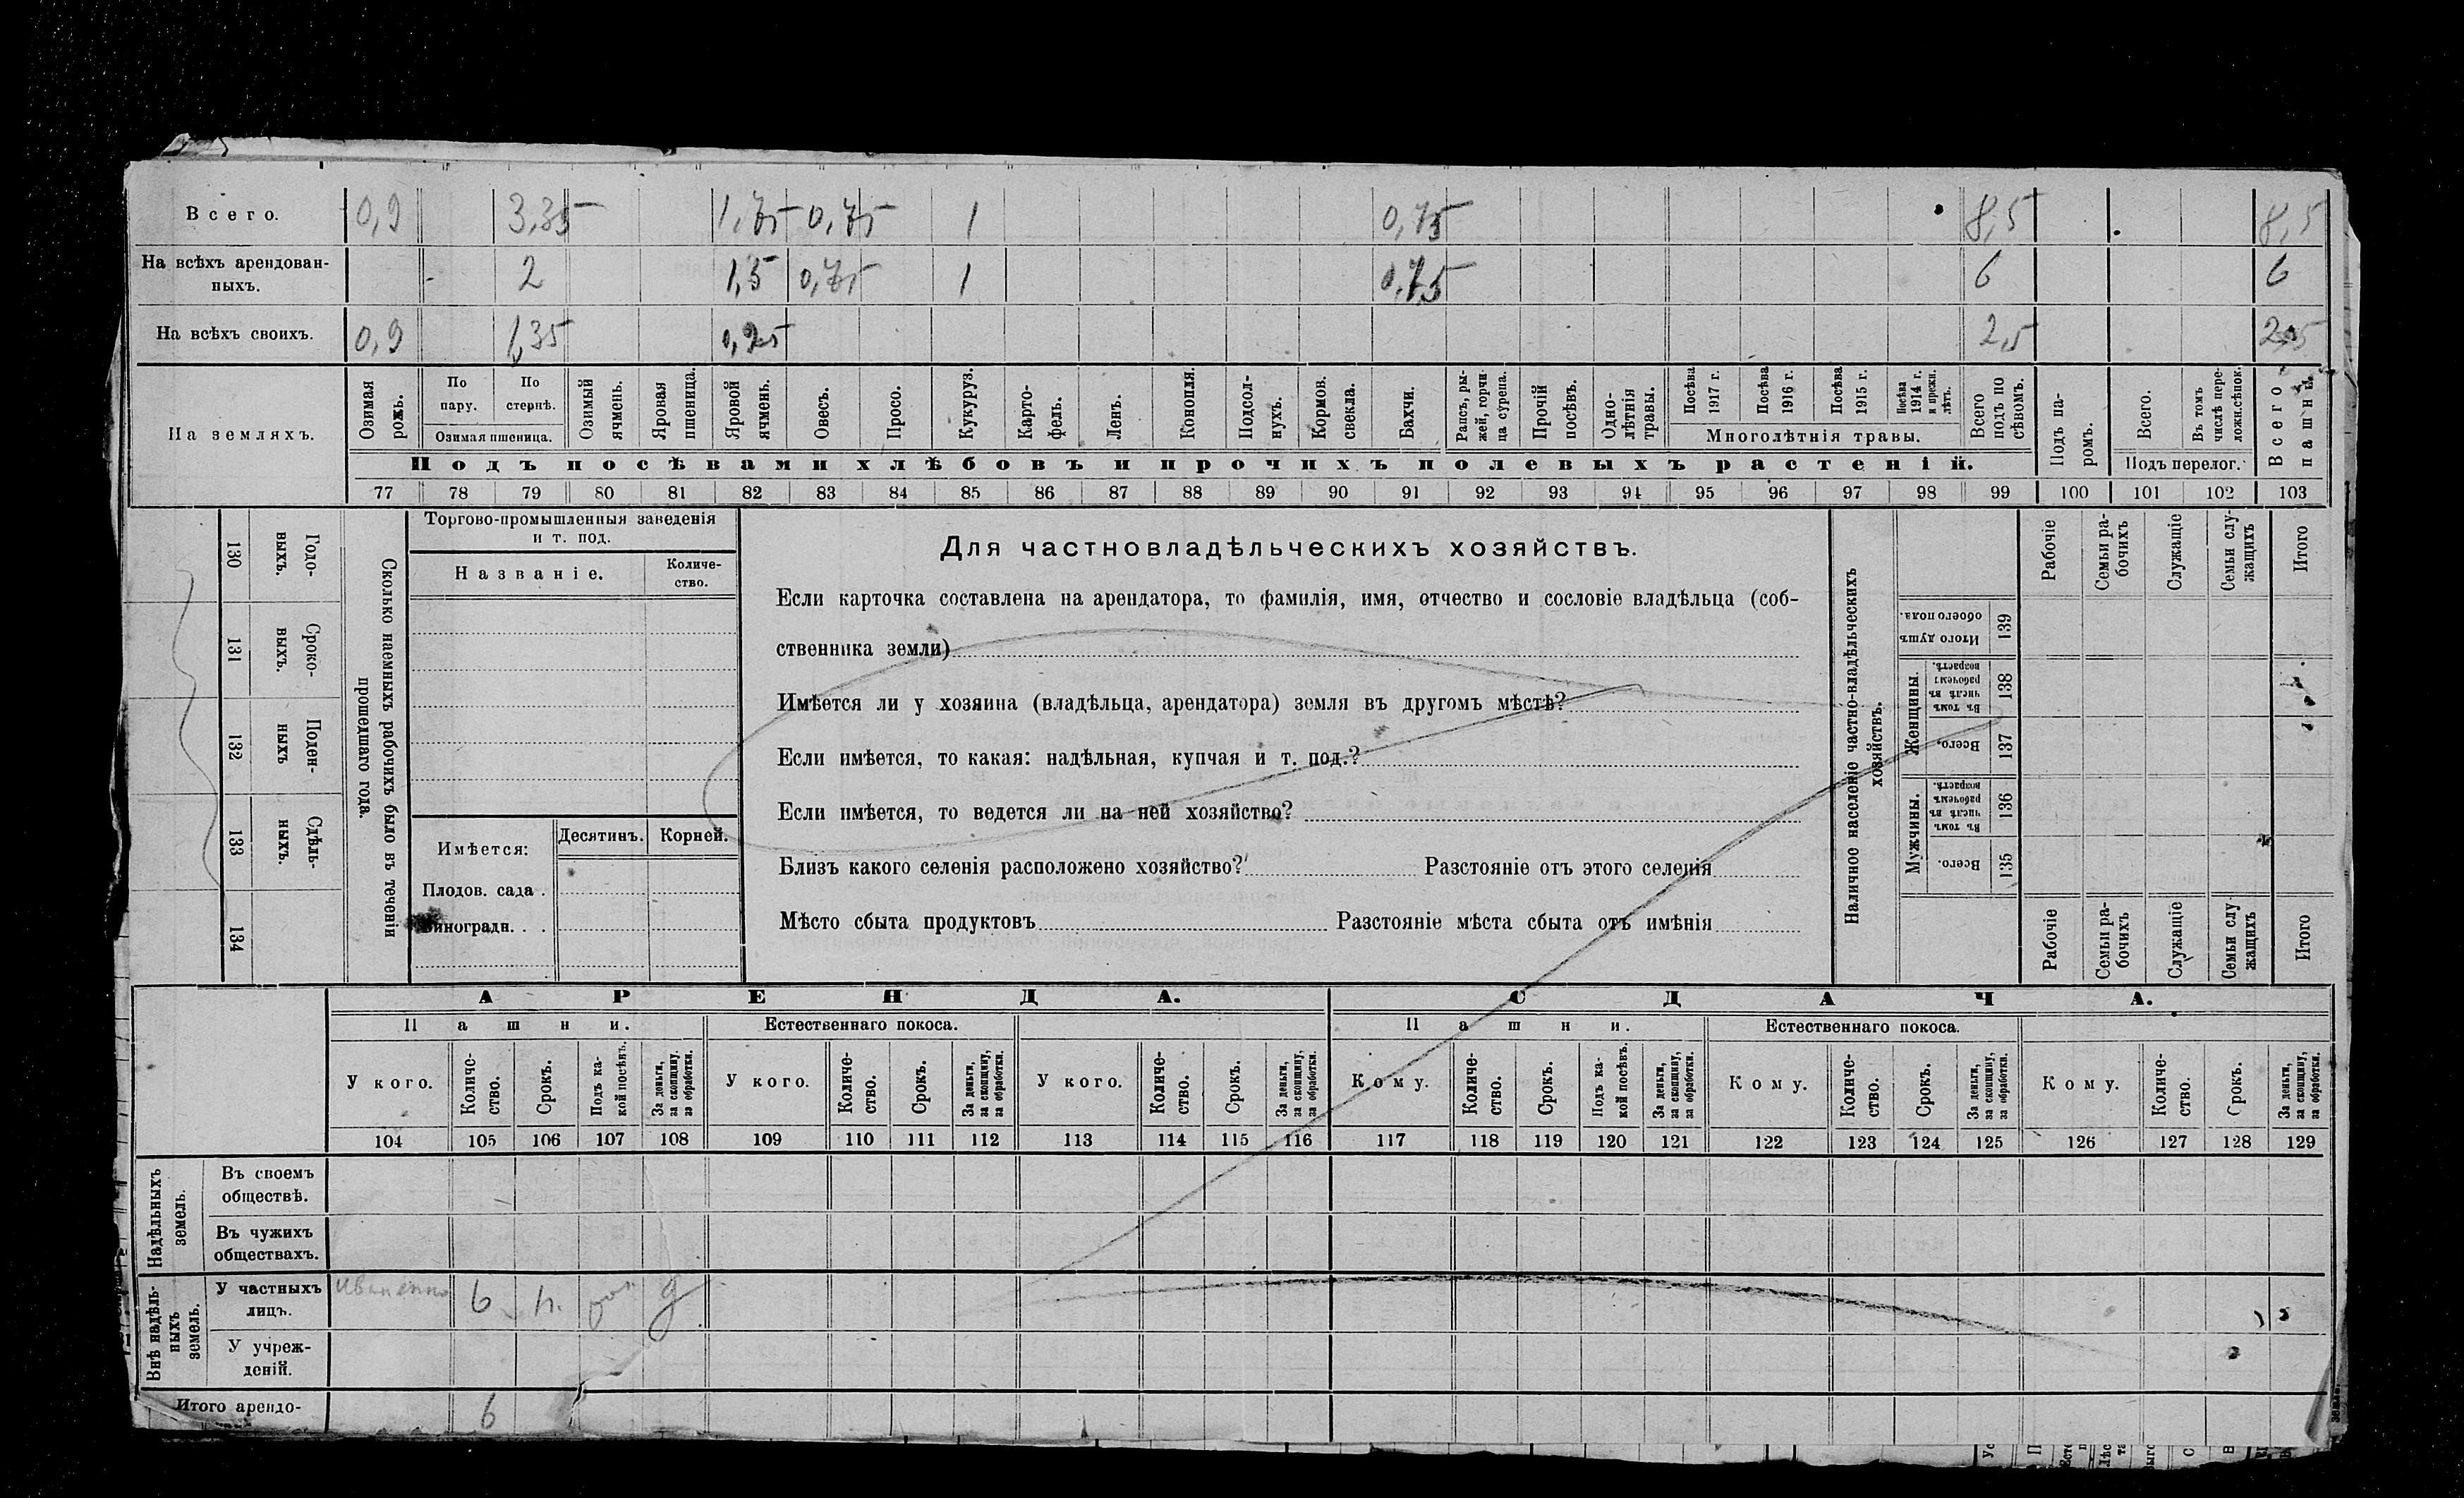 Всего. 0,9 3,35 1,75 0,75 1 0,75 8,5 8,5
На всѣхъ арендован-
ныхъ. - 2 1,5 0,75 1 0,75 6 6
На всѣхъ своихъ. 0,9 1,35 0,25 2,5 2,5
На земляхъ.
Озимая рожь.
По пару.
По стернѣ.
Озимая пшеница.
Озимый ячмень.
Яровая пшеница.
Яровой ячмень.
Овесъ.
Просо.
Кукуруз.
Карто-
фель.
Ленъ.
Конопля.
Подсол-
нухъ.
Кормов. свекла.
Бахчи.
Рапсъ, ры-
жей, горчи-
ца сурепа.
Прочій посѣвъ.
Одно-
лѣтнія травы.
Посѣва 1917 г.
Посѣва 1916 г.
Посѣва 1915 г.
Посѣва 1914 г. и прежн. лѣтъ.
Многолѣтнія травы.
Всего подъ по сѣвомъ.
Подъ па-
ромъ.
Всего.
Въ томъ числѣ пере-
ложн. сѣнок.
Подъ перелог.
Всего пашни.
Подъ посѣвами хлѣбовъ и прочихъ полевыхъ растеній.
77 78 79 80 81 82 83 84 85 86 87 88 89 90 91 92 93 94 95 96 97 98 99 100 101 102 103
130 Годо-
выхъ.
131 Сроко-
выхъ.
132 Поден-
ныхъ
133 Сдѣль-
ныхъ.
134
Сколько наемныхъ рабочихъ было въ теченіи
прошедшаго года.
Торгово-промышленныя заведенія
и т. под.
Названіе.
Количе-
ство.
Имѣется:
Десятинъ. Корней.
Плодов. сада .
Виноградн. . .
Для частновладѣльческихъ хозяйствъ.
Если карточка составлена на арендатора, то фамилія, имя, отчество и сословіе владѣльца (соб-
ственника земли)
Имѣется ли у хозяина (владѣльца, арендатора) земля въ другомъ мѣстѣ?
Если имѣется, то какая: надѣльная, купчая и т. под.?
Если имѣется, то ведется ли на ней хозяйство?
Близъ какого селенія расположено хозяйство? Разстояніе отъ этого селенія
Мѣсто сбыта продуктовъ Разстояніе мѣста сбыта отъ имѣнія
Наличное населеніе частно-владѣльческихъ
хозяйствъ.
Рабочіе
Семьи ра-
бочихъ
Служащіе
Семьи слу-
жащихъ
Итого
Итого душъ обоего пола. 139
Женщины.
Въ томъ числѣ въ рабочемъ возрастѣ. 138
Всего. 137
Мужчины.
Въ томъ числѣ въ рабочемъ возрастѣ. 136
Всего. 135
Рабочіе
Семьи ра-
бочихъ
Служащіе
Семьи слу
жащихъ
Итого
АРЕНДА. СДАЧА.
Пашни. Естественнаго покоса. Пашни. Естественнаго покоса.
У кого.
Количе-
ство.
Срокъ.
Подъ ка-
кой посѣвъ.
За деньги, за скопщину, за обработки.
У кого.
Количе-
ство.
Срокъ.
За деньги, за скопщину, за обработки.
У кого.
Количе-
ство.
Срокъ.
За деньги, за скопщину, за обработки.
Кому.
Количе-
ство.
Срокъ.
Подъ ка-
кой посѣвъ.
За деньги, за скопщину, за обработки.
Кому.
Количе-
ство.
Срокъ.
За деньги, за скопщину, за обработки.
Кому.
Количе-
ство.
Срокъ.
За деньги, за скопщину, за обработки.
104 105 106 107 108 109 110 111 112 113 114 115 116 117 118 119 120 121 122 123 124 125 126 127 128 129
Надѣльныхъ земель.
Въ своемъ
обществѣ.
Въ чужихъ
обществахъ.
Внѣ надѣль-
ныхъ земель.
У частныхъ
лицъ. 6
У учреж-
деній.
Итого арендо- 6